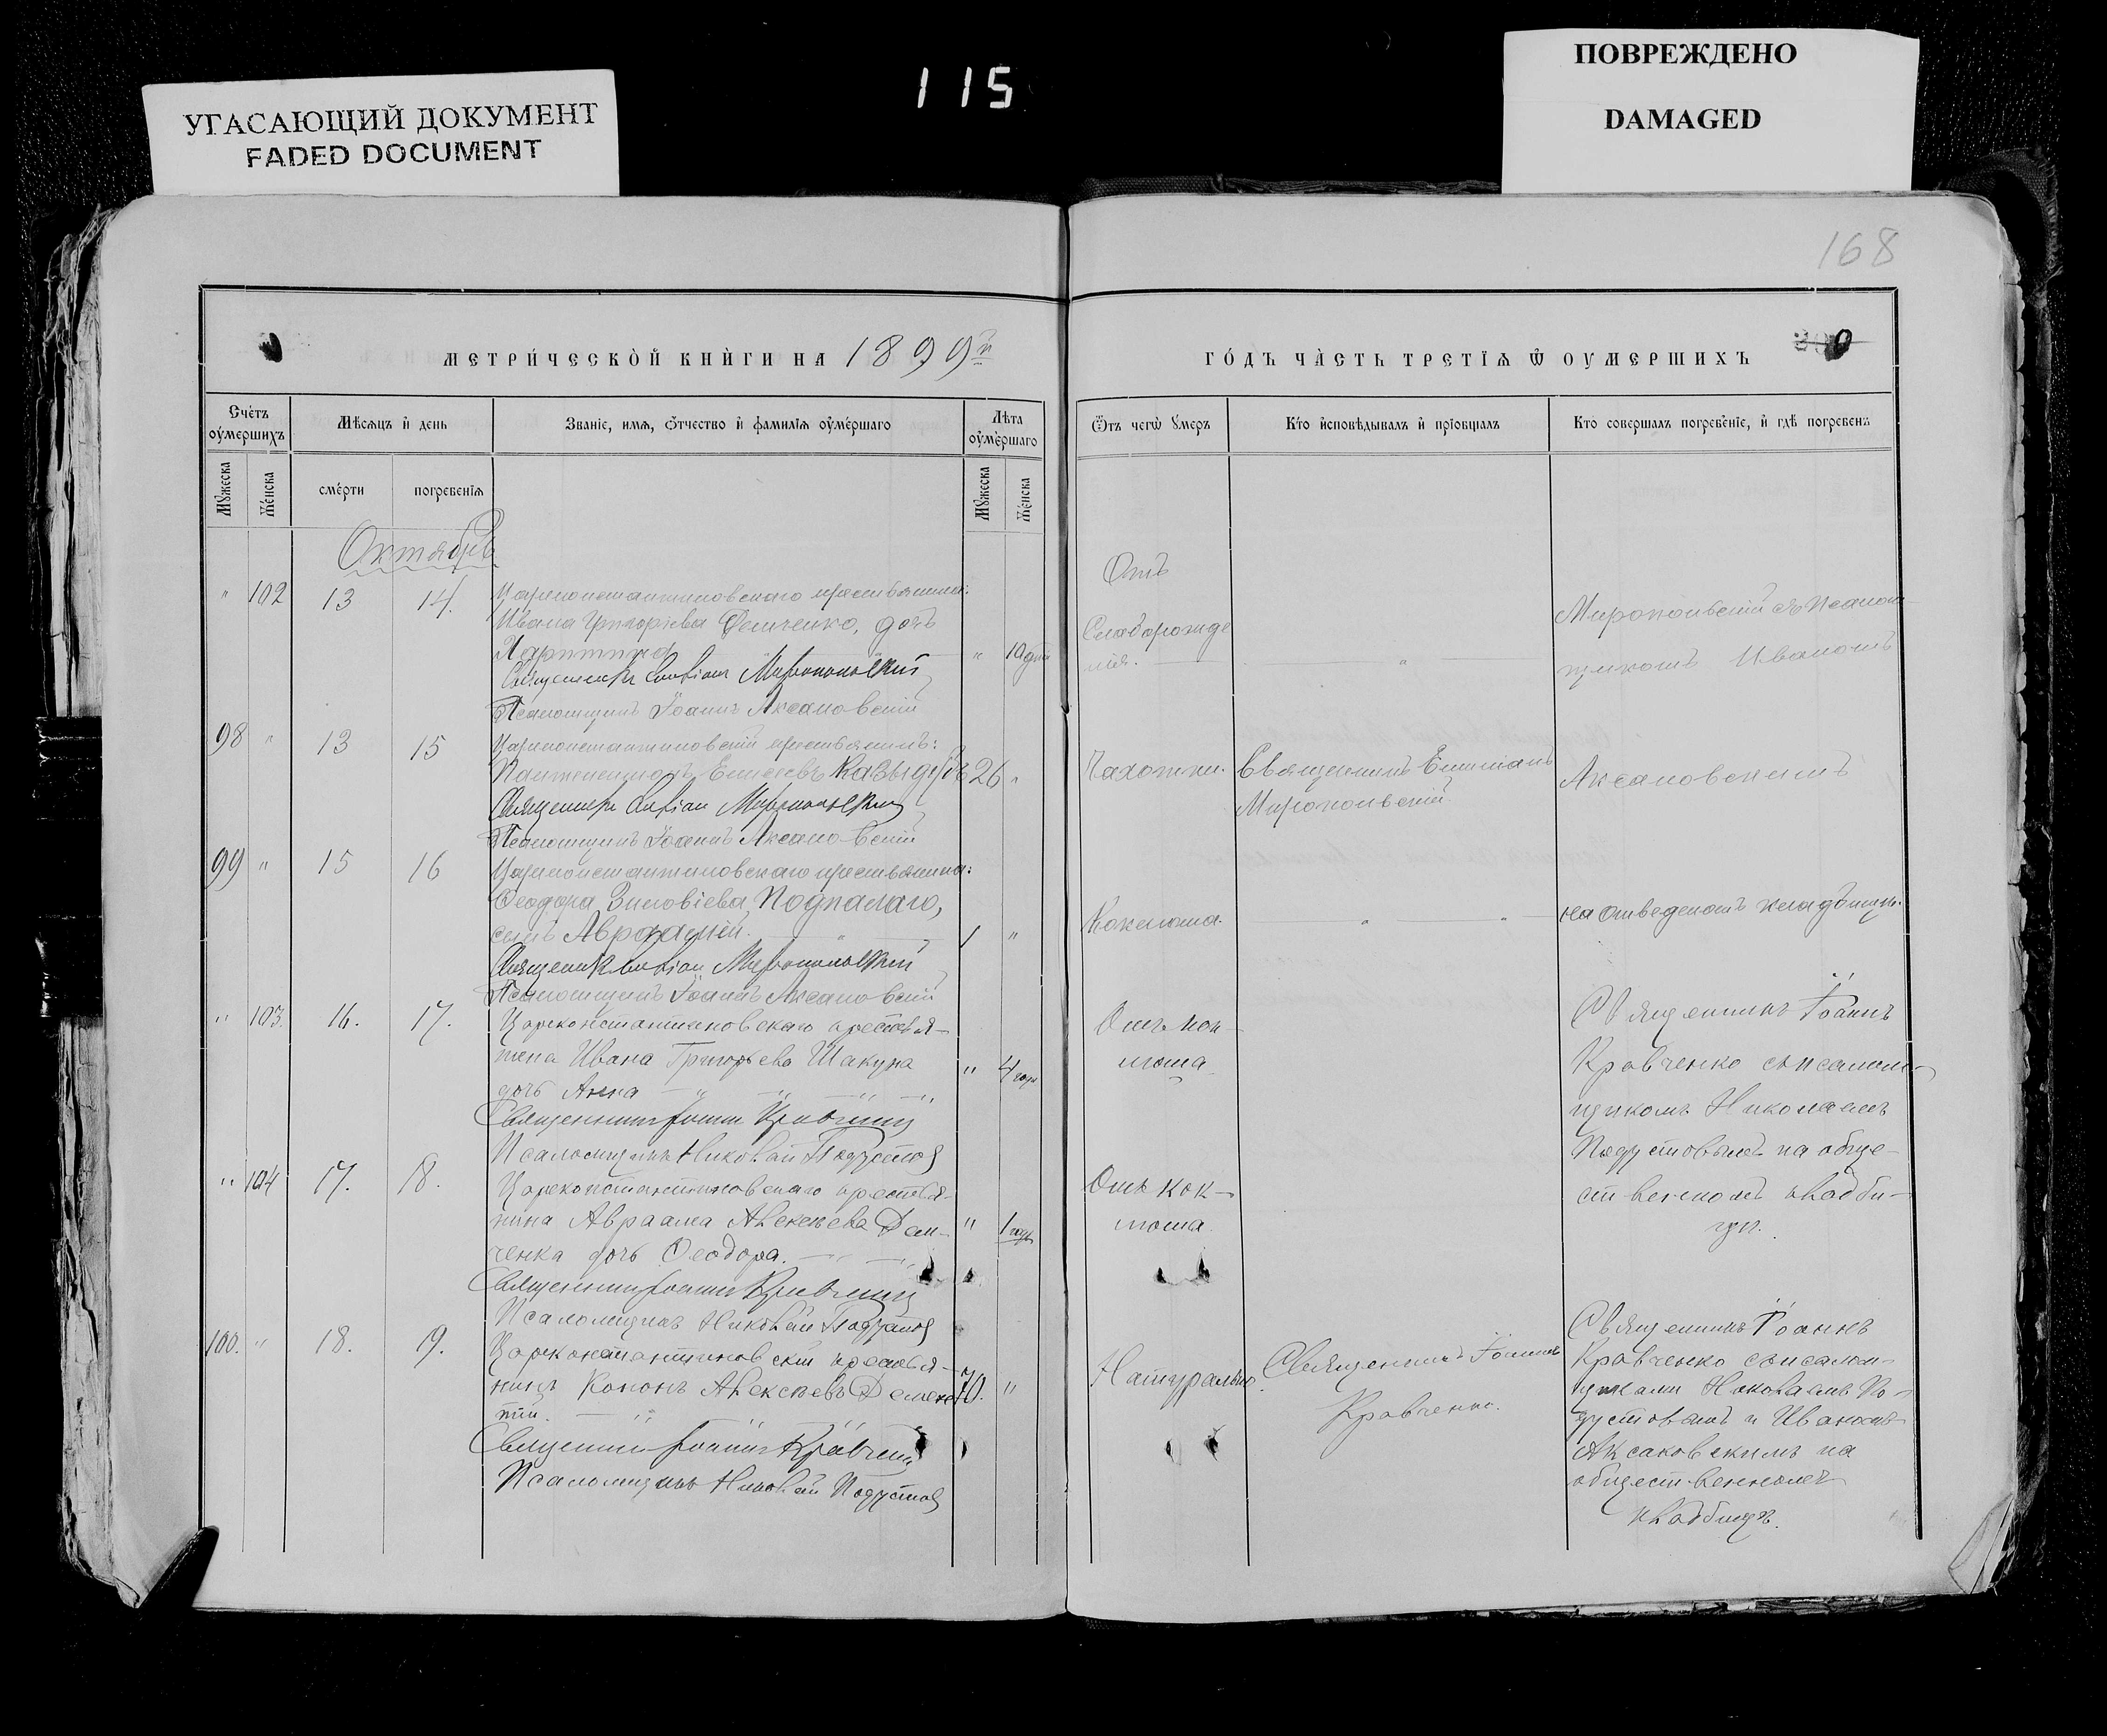 УГАСАЮЩИЙ ДОКУМЕНТ
FADED DOCUMENT
115
ПОВРЕЖДЕНО
DAMAGED
168
МЕТРИ́ЧЕСКОЙ КНИ́ГИ НА 1899й
ГО́ДЪ ЧА́СТЬ ТРЕТІѦ Ѿ ОУМЕРШИХЪ
Сче́тъ оу҆ме́ршихъ
Мѣ́сѧцъ и҆ день
Зва́ніе, имѧ, ѻ҆́тчество и҆ фамилїѧ оу҆ме́ршаго
Лѣ́та оу҆ме́ршаго
Ѿтъ чегѡ̀ ᲂумеръ
Кто̀ и҆сповѣ́дывалъ и҆ прїобщалъ
Кто̀ соверша́лъ погребе́ніе, и҆ гдѣ̀ погребенъ
Мꙋжеска
Же́нска
сме́рти
погребенїѧ
Мꙋжеска
Же́нска
Октябрь
" 102 13 14. Цареконстантиновскаго крестьянина:
Ивана Григоріева Демченко, дочь
Харитина " 10 дней
Священникъ Миропольскій
Псаломщикъ Іоаннъ Аксаковскій
Отъ
Слаборожде
нія. "
Миропольскій съ Псалом
щикомъ Иваномъ
98 " 13 15 Цареконстантиновскій крестьянинъ:
Пантелеимонъ Елисеевъ 26 "
Священникъ Миропольскій
Псаломщикъ Іоаннъ Аксаковскій
Чахотки.
Священникъ Емиліанъ
Миропольскій
Аксаковскимъ
99 " 15 16 Цареконстантиновскаго крестьянина:
Ѳеодора Зиновіева Подпалаго,
сынъ Авраамій. " 1 "
Священникъ Миропольскій
Псаломщикъ Іоаннъ Аксаковскій
Коклюша. " "
на отведеномъ кладбищѣ.
" 103. 16. 17. Цареконстантиновскаго крестья-
нина Ивана Григорьева Шакуна " 4 года
дочь Анна " " " "
Священникъ Іоаннъ Кравченко
Псаломщикъ Николай Подустов
Отъ кок-
люша
Священникъ Іоаннъ
Кравченко съ псалом-
щикомъ Николаемъ
Подустовымъ на обще-
ственномъ кладби-
щѣ.
" 104 17. 18. Цареконстантиновскаго крестья-
нина Авраама Алексѣева Дем- " 1 годъ
ченка дочь Ѳеодора.
Священникъ Іоаннъ Кравченко
Псаломщикъ Николай Подустов
Отъ кок-
люша.
100. " 18. 19. Цареконстантиновскій крестья-
нинъ Кононъ Алексѣевъ 70. "
Священникъ Іоаннъ Кравченко
Псаломщикъ Николай Подустов
Натурально.
Священникъ Іоаннъ
Кравченко.
Священникъ Іоаннъ
Кравченко съ псалом-
щиками Николаемъ По-
дустовымъ и Иваномъ
Аксаковскимъ на
общественномъ
кладбищѣ.